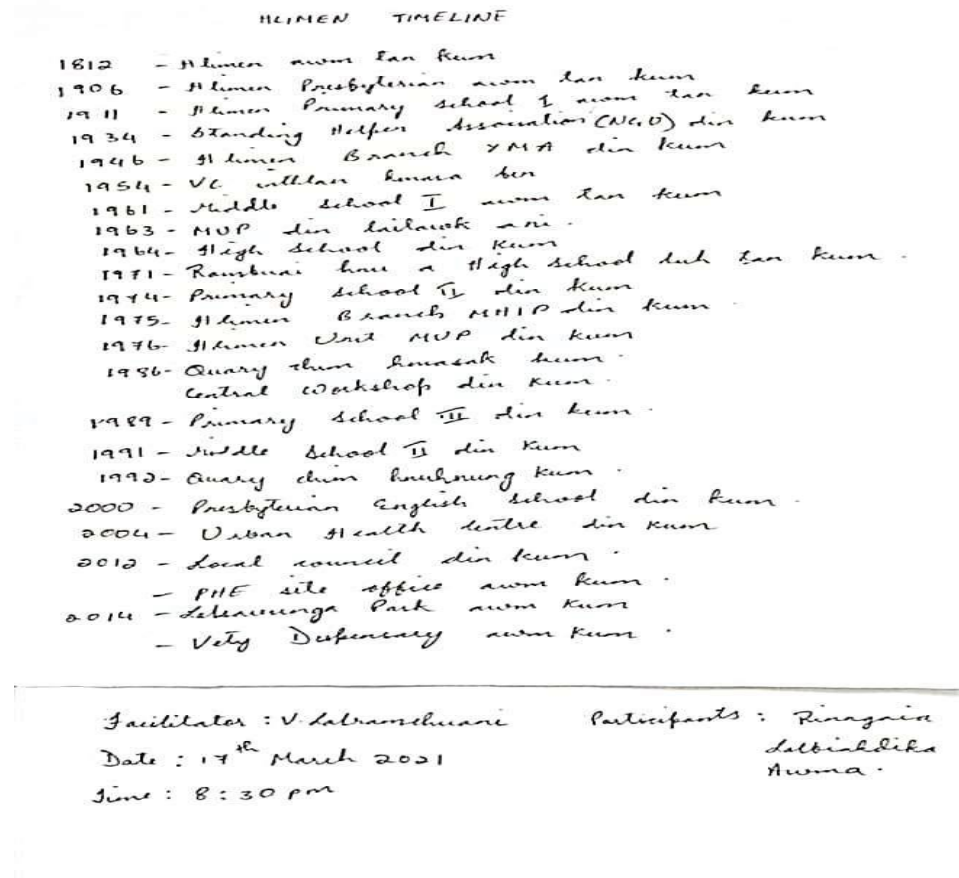 HLIMEN TIMELINE
1812 - Hlimen awm tan kum
1906 - Hlimen Presbyterian awm tan kum
1911 - Hlimen Primary School I awm tan kum
1934 - Standing Helper Association (NGO) din kum
1946 - Hlimen Branch YMA din kum
1954 - VC inthlan hmasa ber
1961 - Middle School I awm tan kum
1963 - MUP din ani.
1964 - High School din kum
1971 - Rambuai a High School luh tan kum.
1974 - Primary School II din kum
1975 - Hlimen Branch MHIP din kum.
1976 - Hlimen Unit MUP din kum
1986 - Quary hmasak kum.
Central Workshop din kum.
1989 - Primary School III din kum.
1991 - Middle School II din kum
1992 - Quary chim hnuhnung kum.
2000 - Presbyterian English School din kum.
2004 - Urban Health Centre din kum
2012 - Local council din kum.
- PHE site office awm kum.
2014 - Park awm kum
- Vety Dispensary awm kum.
Facilitator : V. Participants :
Date : 17th March 2021 Lalbiakdika
Time : 8:30 pm Awma.